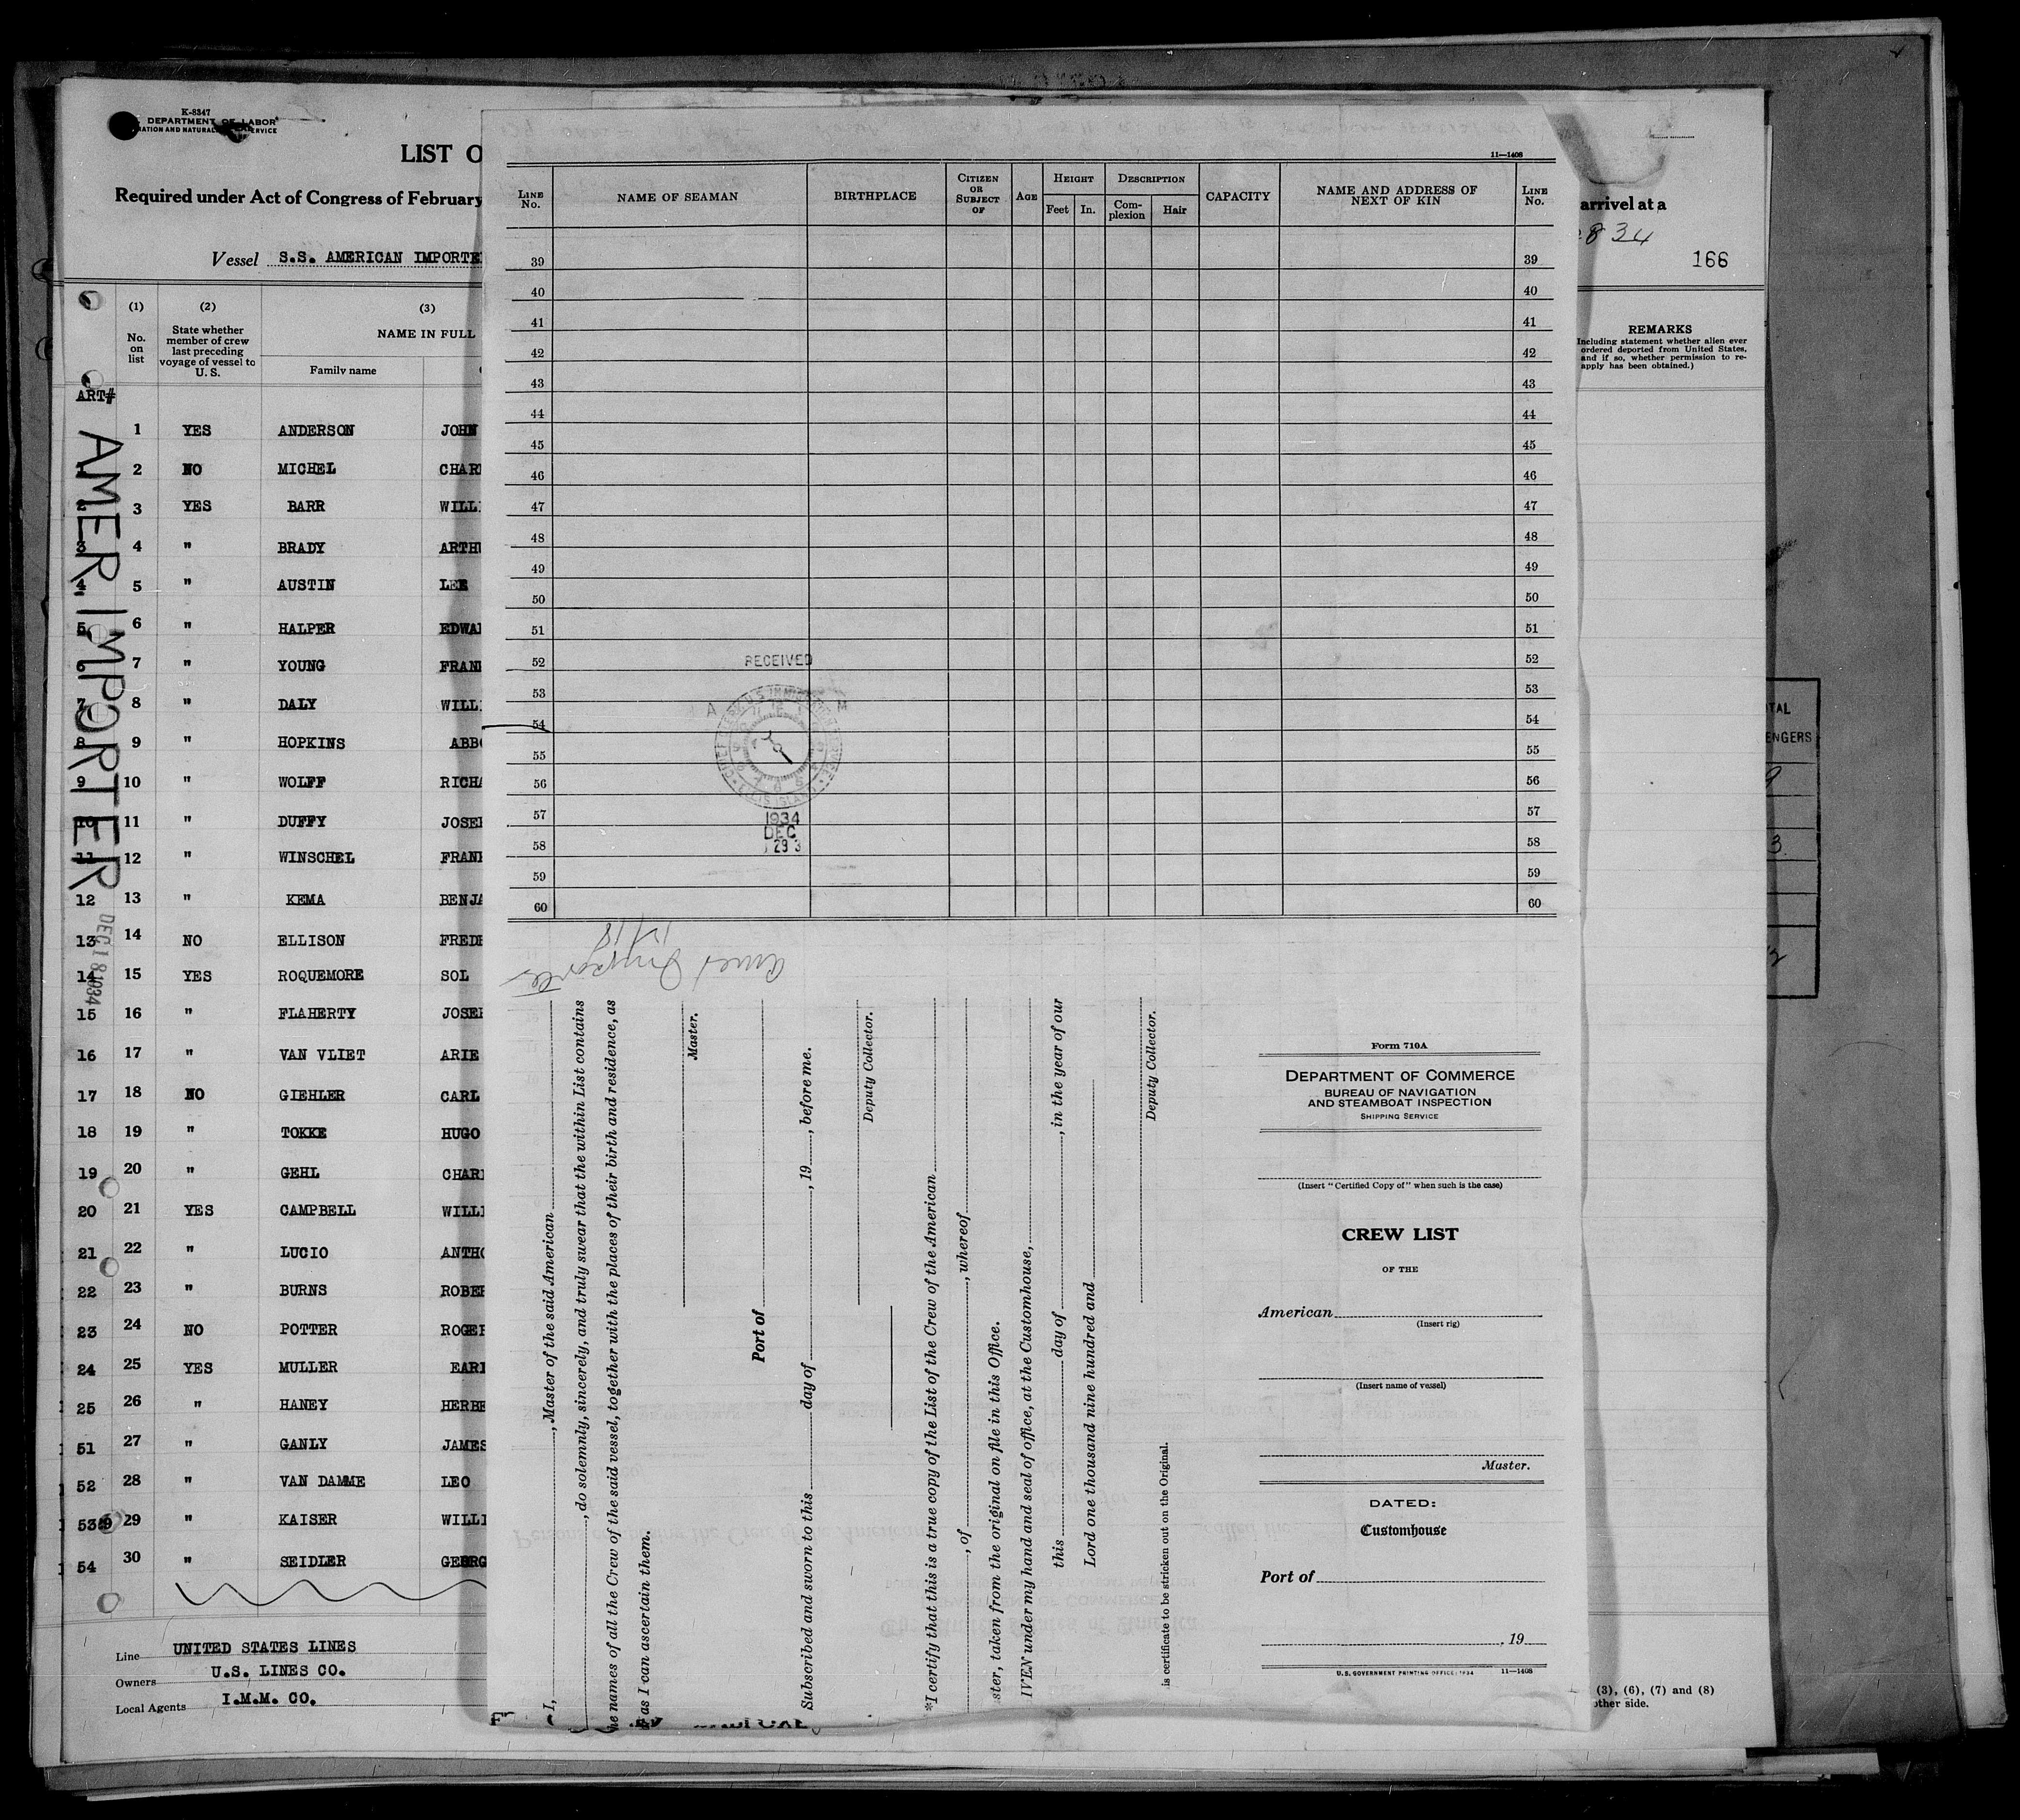 K-8347
DEPARTMENT OF LABOR
LIST O
Required under Act of Congress of February
Vessel S.S. AMERICAN IMPORTE
(1) (2) (3)
No. on list
State whether member of crew last preceding voyage of vessel to U. S.
NAME IN FULL
Family name
ART#
1 YES ANDERSON JOHN
1 2 NO MICHEL CHAR
2 3 YES BARR WILL
3 4 " BRADY ARTH
4 5 " AUSTIN LEE
5 6 " HALPER EDWA
6 7 " YOUNG FRAN
7 8 " DALY WILL
8 9 " HOPKINS ABB
9 10 " WOLFF RICHA
10 11 " DUFFY JOSE
11 12 " WINSCHEL FRAN
12 13 " KEMA BENJA
13 14 NO ELLISON FRED
14 15 YES ROQUEMORE SOL
15 16 " FLAHERTY JOSE
16 17 " VAN VLIET ARIE
17 18 NO GIEHLER CARL
18 19 " TOKKE HUGO
19 20 " GEHL CHAR
20 21 YES CAMPBELL WILL
21 22 " LUCIO ANTH
22 23 " BURNS ROBE
23 24 NO POTTER ROGE
24 25 YES MULLER EARL
25 26 " HANEY HERBE
51 27 " GANLY JAMES
52 28 " VAN DAMME LEO
53 29 " KAISER WILLI
54 30 " SEIDLER GEORG
AMER. IMPORTER
DEC 18 1934
Line UNITED STATES LINES
Owners U.S. LINES CO.
Local Agents I.M.M. CO.
11—1408
LINE No.
NAME OF SEAMAN
BIRTHPLACE
CITIZEN OR SUBJECT OF
AGE
HEIGHT
Feet In.
DESCRIPTION
Complexion Hair
CAPACITY
NAME AND ADDRESS OF NEXT OF KIN
LINE No.
39 39
40 40
41 41
42 42
43 43
44 44
45 45
46 46
47 47
48 48
49 49
50 50
51 51
52 52
53 53
54 54
55 55
56 56
57 57
58 58
59 59
60 60
RECEIVED
1934
DEC
Amer Importer
12/18
I, , Master of the said American
, do solemnly, sincerely, and truly swear that the within List contains
names of all the Crew of the said vessel, together with the places of their birth and residence, as
as I can ascertain them.
Master.
Port of
Subscribed and sworn to this day of , 19 , before me.
Deputy Collector.
*I certify that this is a true copy of the List of the Crew of the American
, of , whereof
ster, taken from the original on file in this Office.
IVEN under my hand and seal of office, at the Customhouse,
this day of , in the year of our
Lord one thousand nine hundred and
Deputy Collector.
is certificate to be stricken out on the Original.
Form 710A
DEPARTMENT OF COMMERCE
BUREAU OF NAVIGATION
AND STEAMBOAT INSPECTION
SHIPPING SERVICE
(Insert "Certified Copy of" when such is the case)
CREW LIST
OF THE
American
(Insert rig)
(Insert name of vessel)
Master.
DATED:
Customhouse
Port of
, 19
U.S. GOVERNMENT PRINTING OFFICE: 1934 11—1408
arrival at a
834
166
REMARKS
Including statement whether alien ever
ordered deported from United States,
and if so, whether permission to re-
apply has been obtained.)
(3), (6), (7) and (8)
other side.
TAL
ENGERS